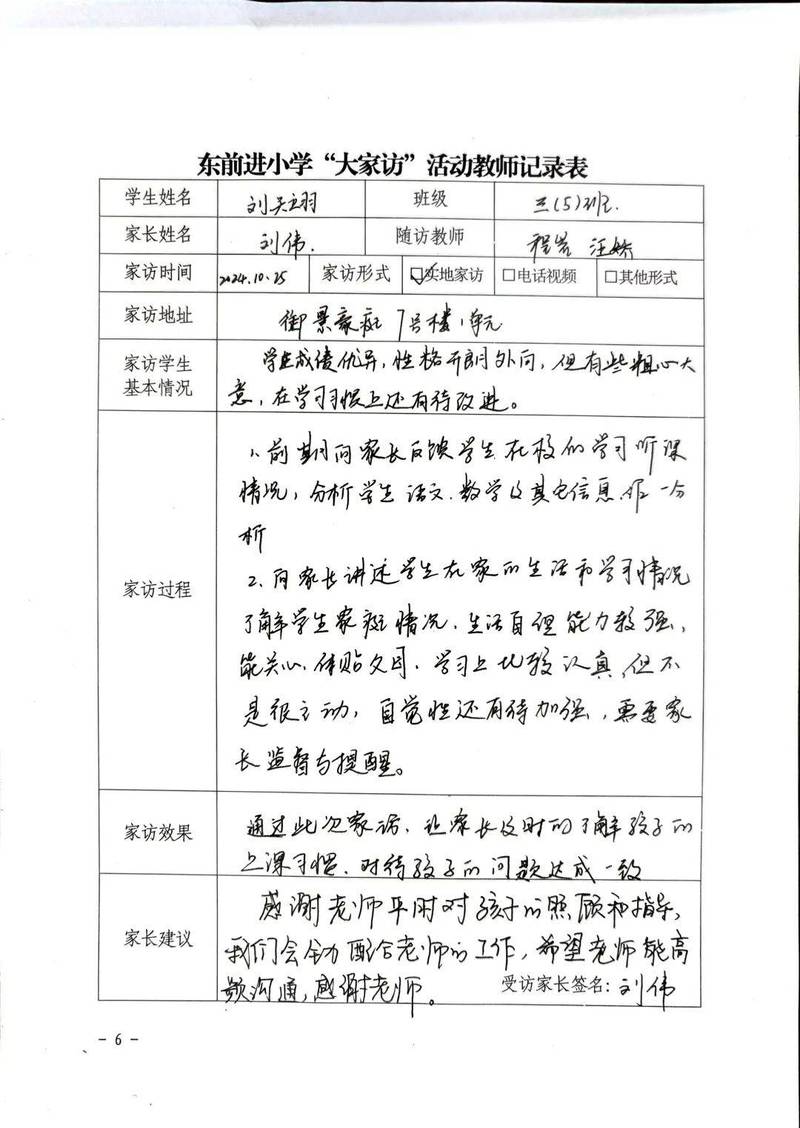 东前进小学“大家访”活动教师记录表
学生姓名 刘昊翊 班级 三(5)班.
家长姓名 刘伟. 随访教师 程岩 汪娇
家访时间 2024.10.25 家访形式 ☑实地家访 □电话视频 □其他形式
家访地址 御景豪庭 7号楼1单元
家访学生 学生成绩优异,性格开朗外向,但有些粗心大
基本情况 意,在学习习惯上还有待改进。
家访过程
1、前期向家长反馈学生在校的学习听课
情况,分析学生语文.数学及其它信息.作一分
析
2、向家长讲述学生在家的生活和学习情况
了解学生家庭情况.生活自理能力较强、
能关心、体贴父母.学习上比较认真,但不
是很主动,自觉性还有待加强,需要家
长监督与提醒。
家访效果 通过此次家访.让家长及时的了解孩子的
上课习惯.对待孩子的问题达成一致
家长建议 感谢老师平时对孩子的照顾和指导,
我们会全力配合老师的工作,希望老师能高
频沟通,感谢老师。 受访家长签名:刘伟
- 6 -